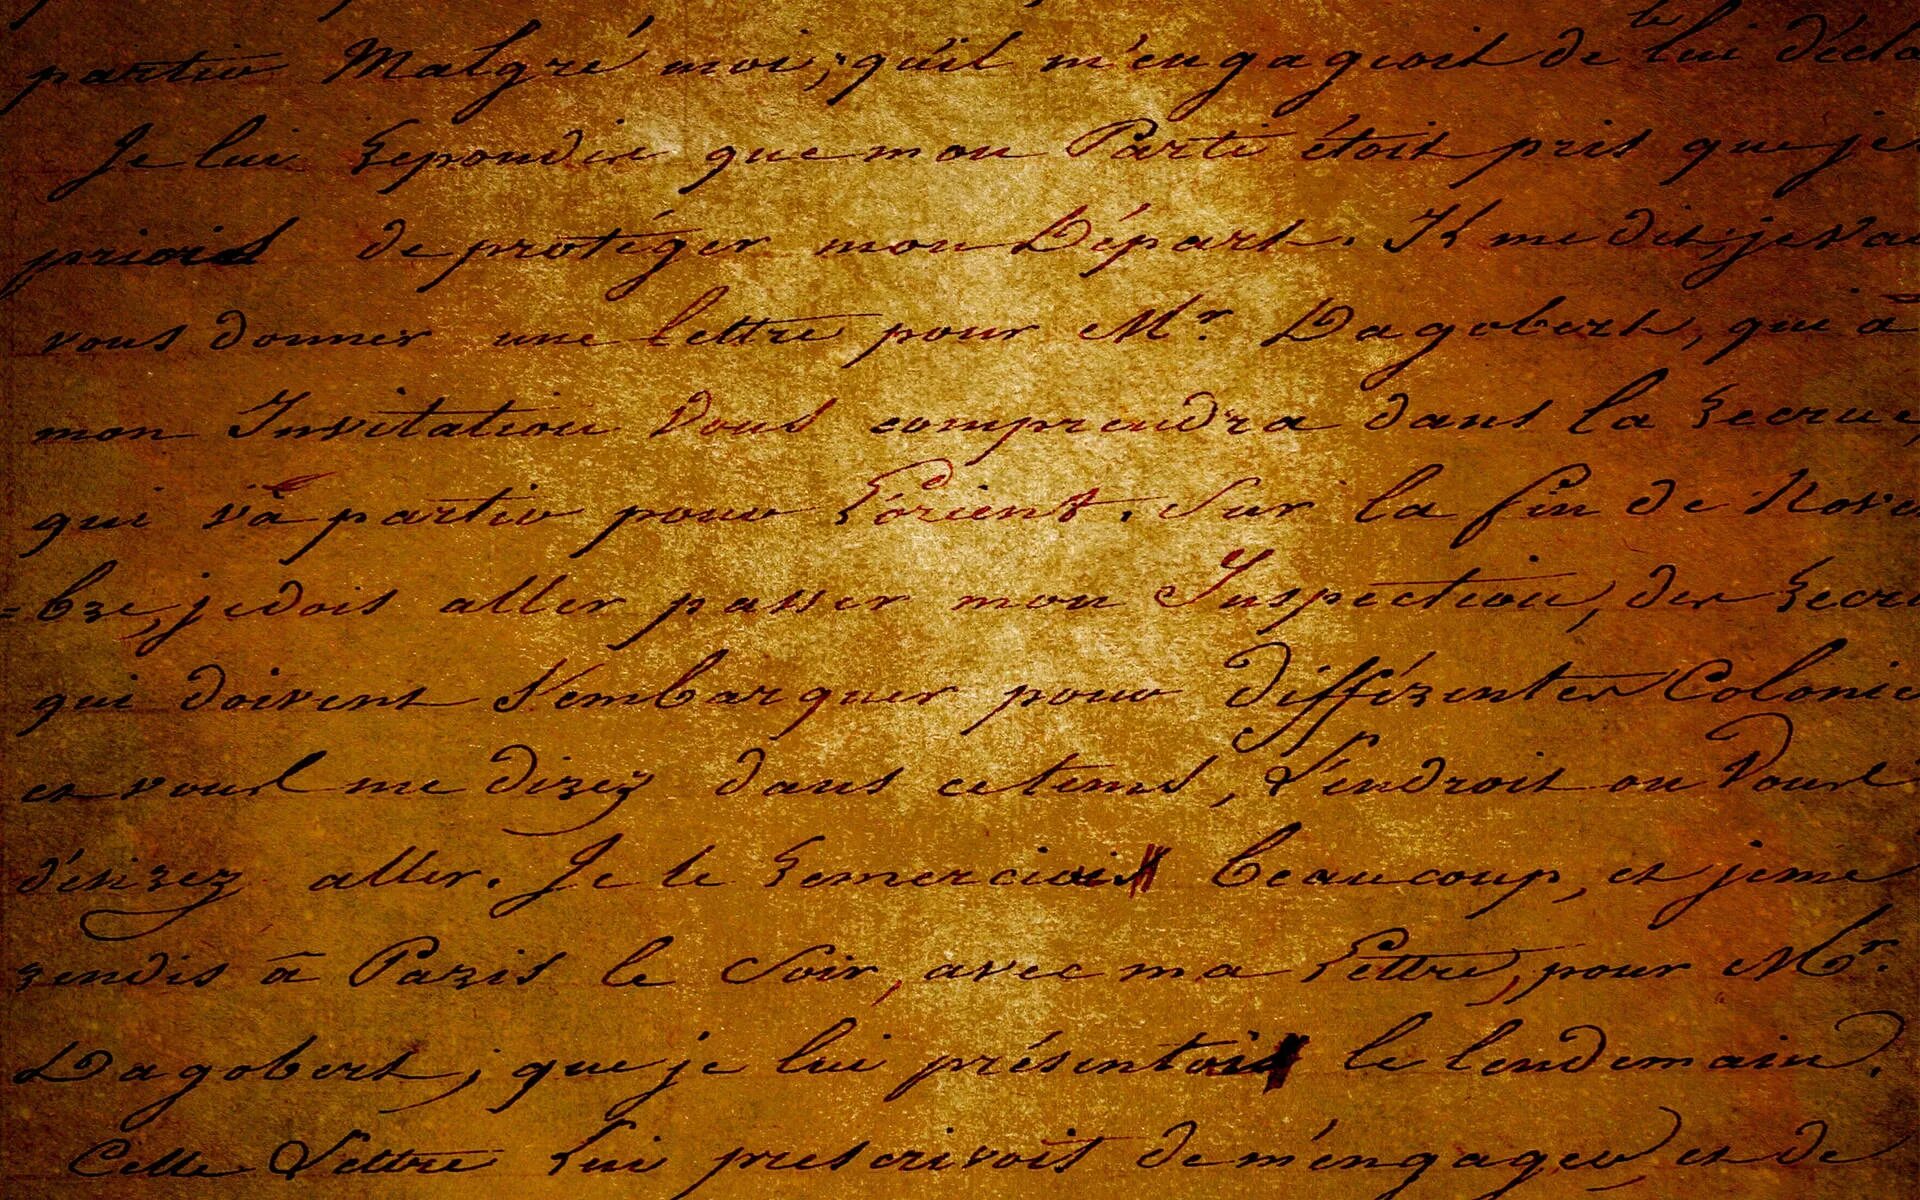 partir Malgré moi; qu'il m'engageoit de le lui décla
Je lui Repondis que mon Parti étoit pris que je
priois de protéger mon Départ. Il me dit; je va
vous donner une lettre pour Mr. Dagobert, qui à
mon Invitation Vous comprendra dans la Recrue,
qui va partir pour L'orient. Sur la fin de Nove
=bre, je dois aller passer mon Inspection, des Recru
qui doivent S'embarquer pour différentes Colonie
et vous me direz dans ce tems, L'endroit ou Vous
désirez aller. Je le Remerciois beaucoup, et je me
rendis à Paris le Soir, avec ma Lettre, pour Mr.
Dagobert, que je lui présentois le lendemain.
Cette Lettre Lui prescrivoit de m'engager et de